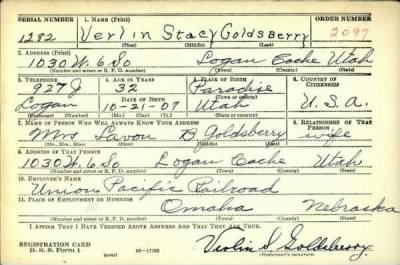 SERIAL NUMBER 1. NAME (Print) ORDER NUMBER
1282 Verlin Stacy Goldsberry 2097
(First) (Middle) (Last)
2. ADDRESS (Print)
1030 W. 6 So Logan Cache Utah
(Number and street or R. F. D. number) (Town) (County) (State)
3. TELEPHONE 4. AGE IN YEARS 5. PLACE OF BIRTH 6. COUNTRY OF CITIZENSHIP
927J 32 Paradise
(Town or county)
Logan DATE OF BIRTH 10-21-07 Utah U.S.A.
(Exchange) (Number) (Mo.) (Day) (Yr.) (State or country)
7. NAME OF PERSON WHO WILL ALWAYS KNOW YOUR ADDRESS 8. RELATIONSHIP OF THAT PERSON
Mrs Lavon B Goldsberry wife
(Mr., Mrs., Miss) (First) (Middle) (Last)
9. ADDRESS OF THAT PERSON
1030 W. 6 So Logan Cache Utah
(Number and street or R. F. D. number) (Town) (County) (State)
10. EMPLOYER'S NAME
Union Pacific Railroad
11. PLACE OF EMPLOYMENT OR BUSINESS
Omaha Nebraska
(Number and street or R. F. D. number) (Town) (County) (State)
I AFFIRM THAT I HAVE VERIFIED ABOVE ANSWERS AND THAT THEY ARE TRUE.
REGISTRATION CARD
D. S. S. Form 1 (over) 16-17105 Verlin S. Goldsberry
(Registrant's signature)